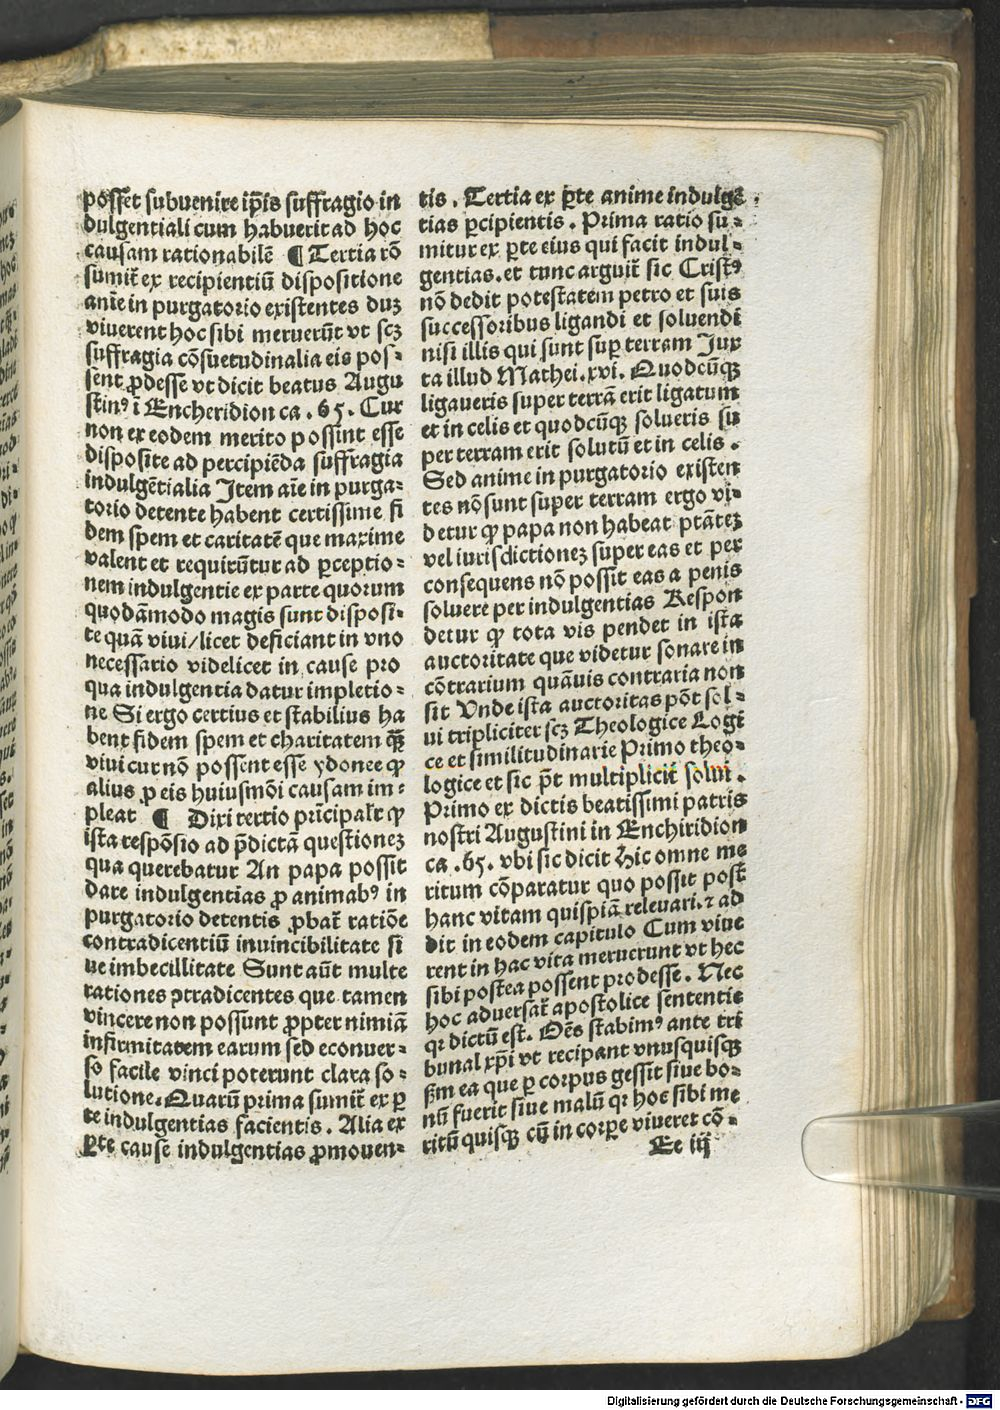 posset subuenire ip̄is suffragio in
dulgentiali cum habuerit ad hoc
causam rationabilē ¶ Tertia rō
sumit̄ ex recipientiū dispositione
anīe in purgatorio existentes duꝫ
viuerent hoc sibi meruerūt vt scꝫ
suffragia cōsuetudinalia eis pos⸗
sent ꝓdesse vt dicit beatus Augu
stinꝰ ī Encheridion ca . 65 . Cur
non ex eodem merito possint esse
disposite ad percipiēda suffragia
indulgētialia Item aīe in purga⸗
torio detente habent certissime fi
dem spem et caritatē que maxime
valent et requirūtur ad ꝑceptio⸗
nem indulgentie ex parte quorum
quodāmodo magis sunt disposi⸗
te quā viui/licet deficiant in vno
necessario videlicet in cause pro
qua indulgentia datur impletio⸗
ne Si ergo certius et stabilius ha
bent fidem spem et charitatem qȝ̄
viui cur nō possent esse ydonee ꝙ
alius ꝓ eis huiusmōi causam im⸗
pleat ¶ Dixi tertio prīcipalr̄ ꝙ
ista respōsio ad p̄dictā questioneꝫ
qua querebatur An papa possit
dare indulgentias ꝓ animabꝰ in
purgatorio detentis ꝓbat̄ ratiōe
contradicentiū inuincibilitate si
ue imbecillitate Sunt aūt multe
rationes ꝯtradicentes que tamen
vincere non possunt ꝓpter nimiā
infirmitatem earum sed econuer⸗
so facile vinci poterunt clara so⸗
lutione. Quarū prima sumit̄ ex ꝑ
te indulgentias facientis . Alia ex
ꝑte cause indulgentias ꝓmouen⸗
tis . Tertia ex ꝑte anime indulgē
tias ꝑcipientis . Prima ratio su⸗
mitur ex ꝑte eius qui facit indul⸗
gentias. et tunc arguit̄ sic Cristꝰ
nō dedit potestatem petro et suis
successoribus ligandi et soluendi
nisi illis qui sunt suꝑ terram Jux
ta illud Mathei .xvi. Quodcūqꝫ
ligaueris super terrā erit ligatum
et in celis et quodcūqꝫ solueris su
per terram erit solutū et in celis .
Sed anime in purgatorio existen
tes nō sunt super terram ergo vi⸗
detur ꝙ papa non habeat ptāteꝫ
vel iurisdictioneꝫ super eas et per
consequens nō possit eas a penis
soluere per indulgentias Respon
detur ꝙ tota vis pendet in ista
auctoritate que videtur sonare in
cōtrarium quāuis contraria non
sit Vnde ista auctoritas pōt sol⸗
ui tripliciter scꝫ Theologice Logi
ce et similitudinarie Primo theo⸗
logice et sic pt̄ multiplicit̄ solui .
Primo ex dictis beatissimi patris
nostri Augustini in Enchiridion
ca . 65 . vbi sic dicit Hic omne me
ritum cōparatur quo possit post
hanc vitam quispiā releuari. ⁊ ad
dit in eodem capitulo Cum viue
rent in hac vita meruerunt vt hec
sibi postea possent prodesse . Nec
hoc aduersat̄ apostolice sententie
qꝛ dictū est. Oēs stabimꝰ ante tri
bunal xp̄i vt recipant vnusquisqꝫ
ẜm ea que ꝑ corpus gessit siue bo⸗
nū fuerit siue malū qꝛ hoc sibi me
ritū quisqꝫ cū in corpe viueret cō⸗
Ee iij
Digitalisierung gefördert durch die Deutsche Forschungsgemeinschaft - DFG